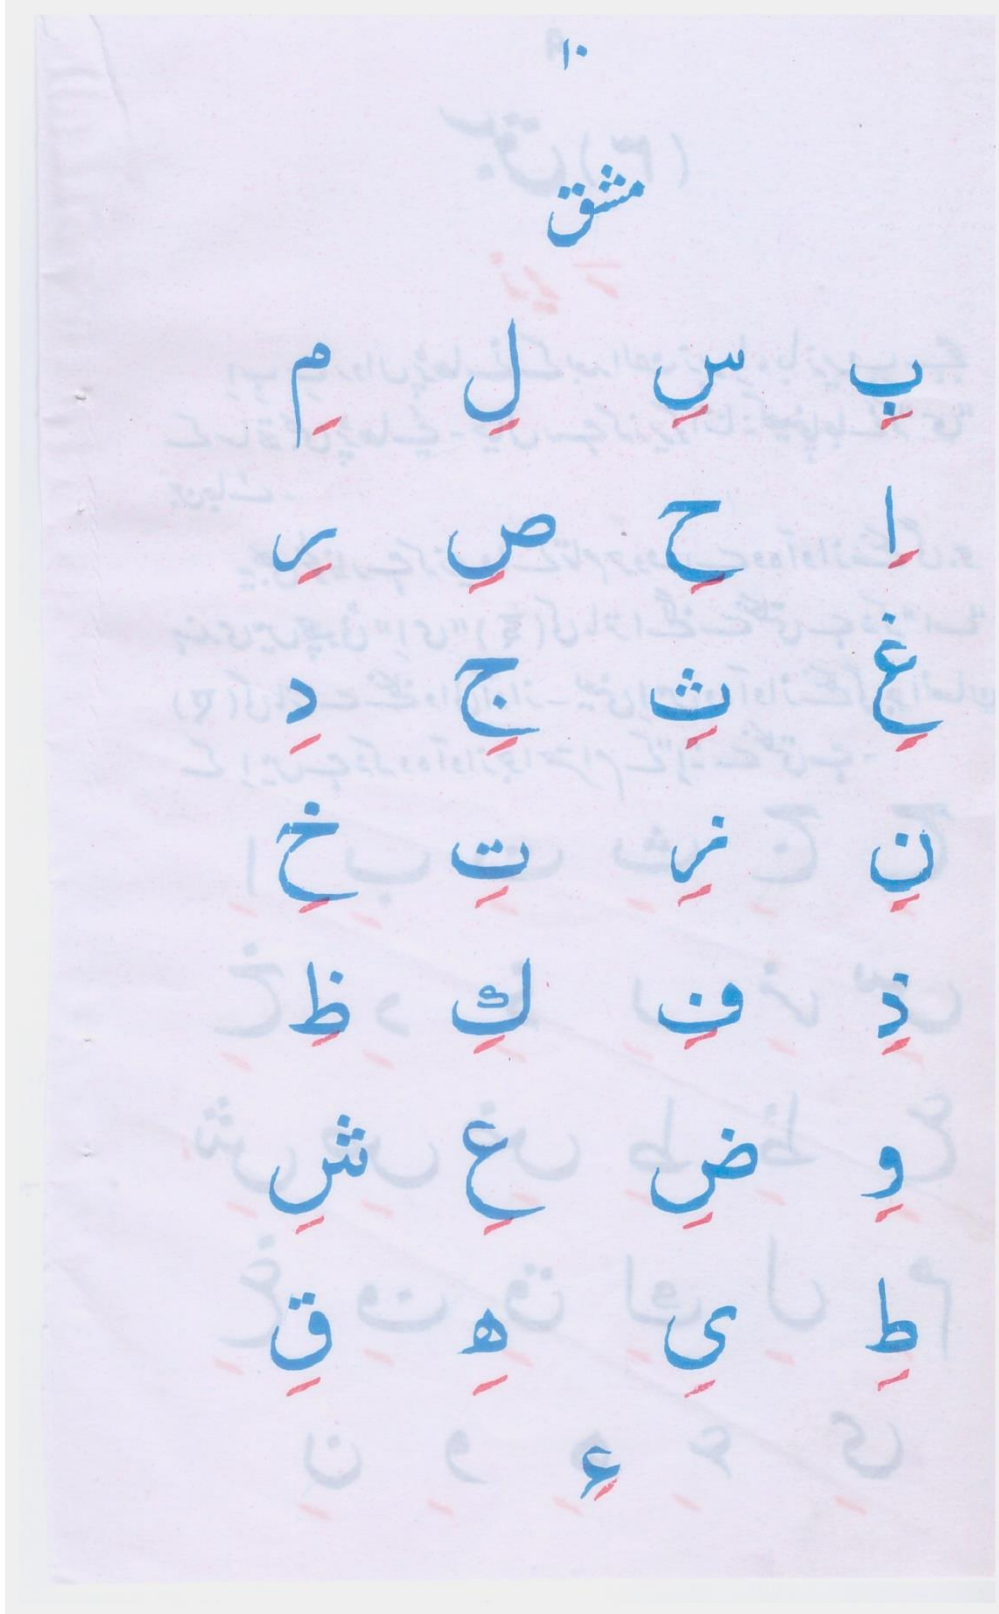 ۱۰
مشق
بِ سِ لِ مِ
اِ حِ صِ رِ
غِ ثِ جِ دِ
نِ زِ تِ خِ
ذِ فِ كِ ظِ
وِ ضِ عِ شِ
طِ یِ هِ قِ
ءِ